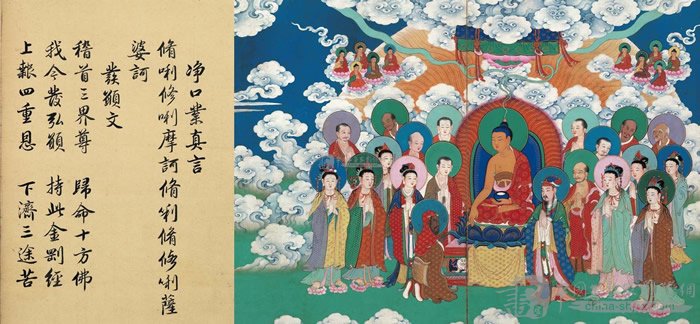 净口業真言
脩唎修唎摩訶脩利脩修唎薩
婆訶
發願文
稽首三界尊 歸命十方佛
我今發弘願 持此金剛經
上報四重恩 下濟三途苦